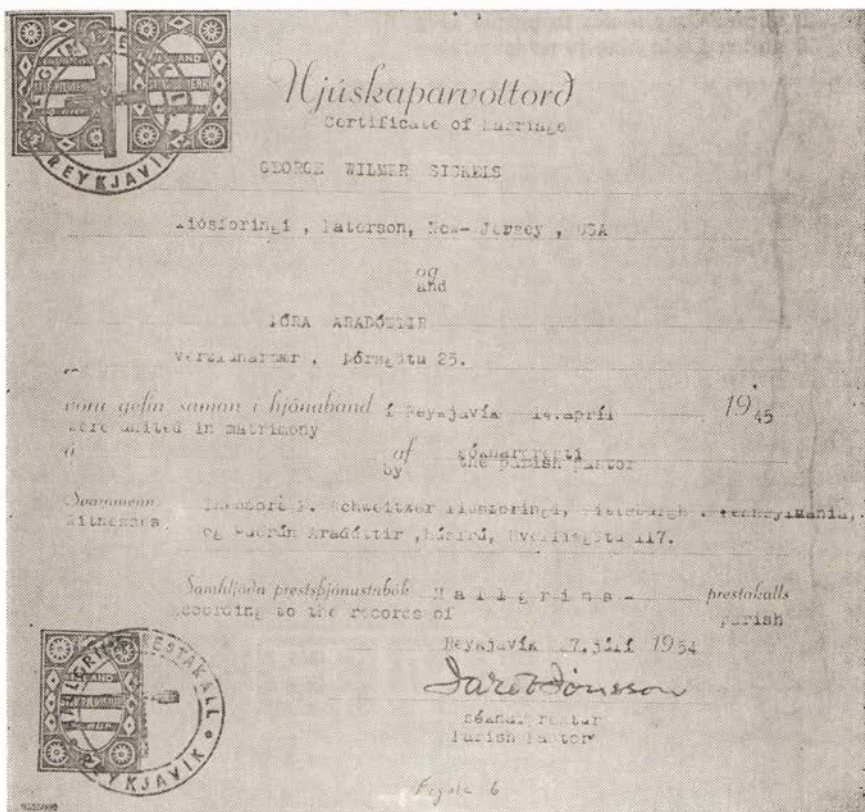 Hjúskaparvottorð
Certificate of Marriage
GEORGE WILMER SICKELS
liðsforingi , Paterson, New-Jersey , USA
og
and
ÞÓRA ARADÓTTIR
verzlunarmær , Þórsgötu 25.
voru gefin saman í hjónaband í Reykjavík 14.apríl 1945
were united in matrimony
af sóknarpresti
by the parish pastor
Svaramenn:
Witnesses
Schweitzer liðsforingi, Pittsburgh , Pennsylvania,
og Guðrún Aradóttir ,húsfrú, Hverfisgötu 117.
Samhljóða prestsþjónustubók Hallgríms- prestakalls
according to the records of parish
Reykjavík júlí 1954
Jónsson
sóknarprestur
Parish Pastor
HALLGRÍMSPRESTAKALL
REYKJAVÍK
REYKJAVÍK
6